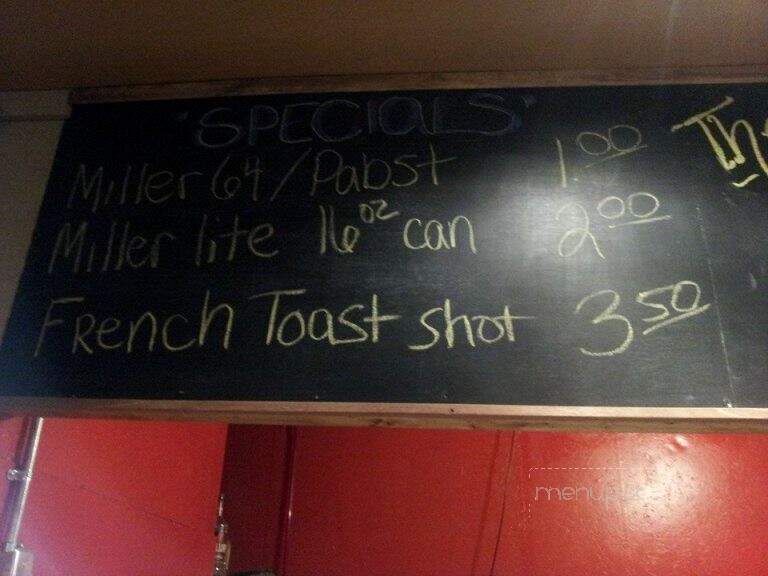 "SPECIALS"
Miller 64/Pabst 1.00
Miller lite 16oz can 2.00
French Toast shot 3.50
Th